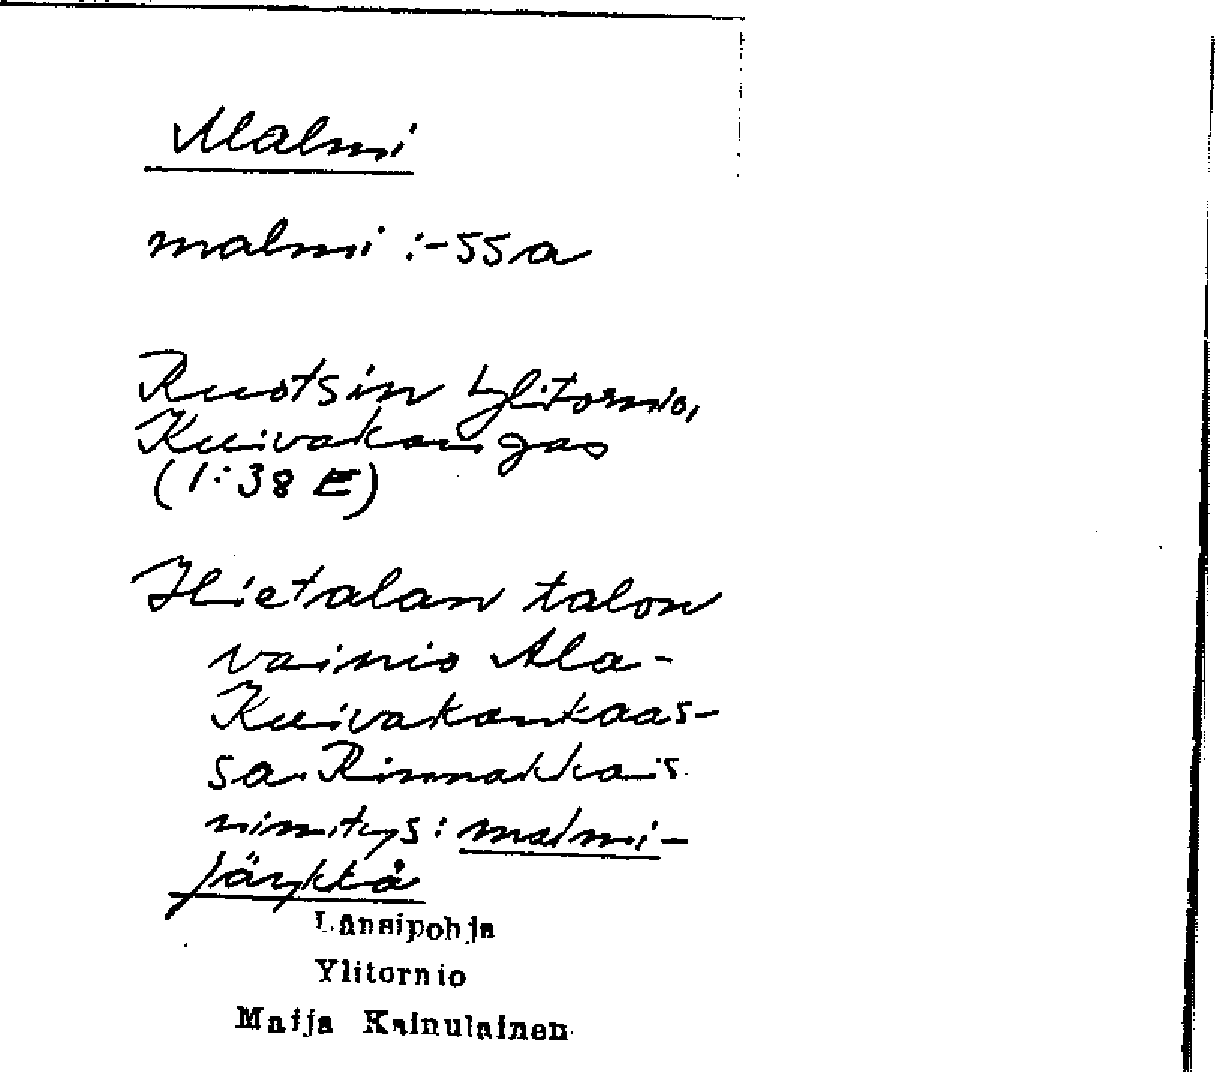 Malmi
malmi :-ssa
Ruotsin Ylitornio,
Kuivakangas
(1:38 E)
Hietalan talon
vainio Ala-
Kuivakankaas-
sa. Rinnakkais
nimitys: malmi-
järkkä
Länsipohja
Ylitornio
Maija Kainulainen